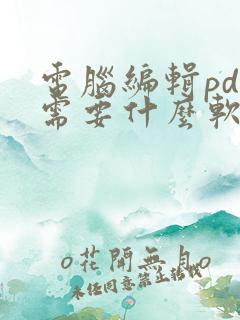 電腦編輯pd
需要什麼軟
o花開無月o
未經同意禁止轉載